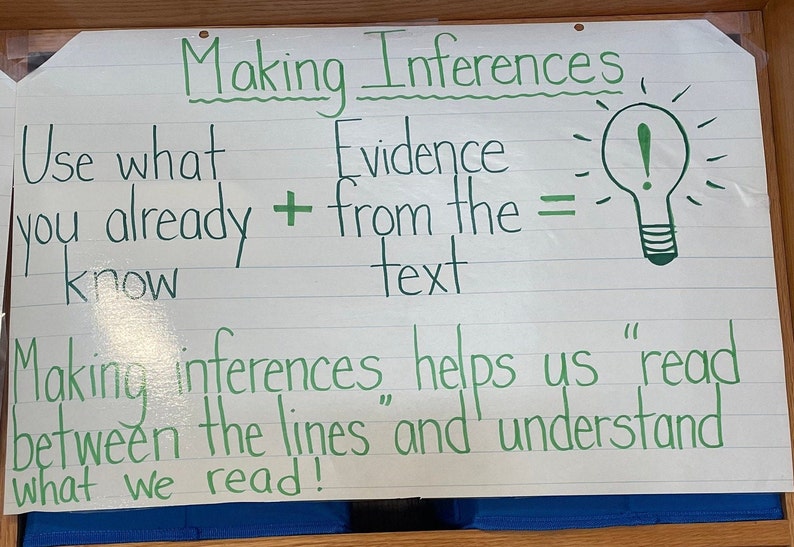 Making Inferences
Use what
you already
know
+
Evidence
from the
text
=
!
Making inferences helps us "read
between the lines" and understand
what we read!